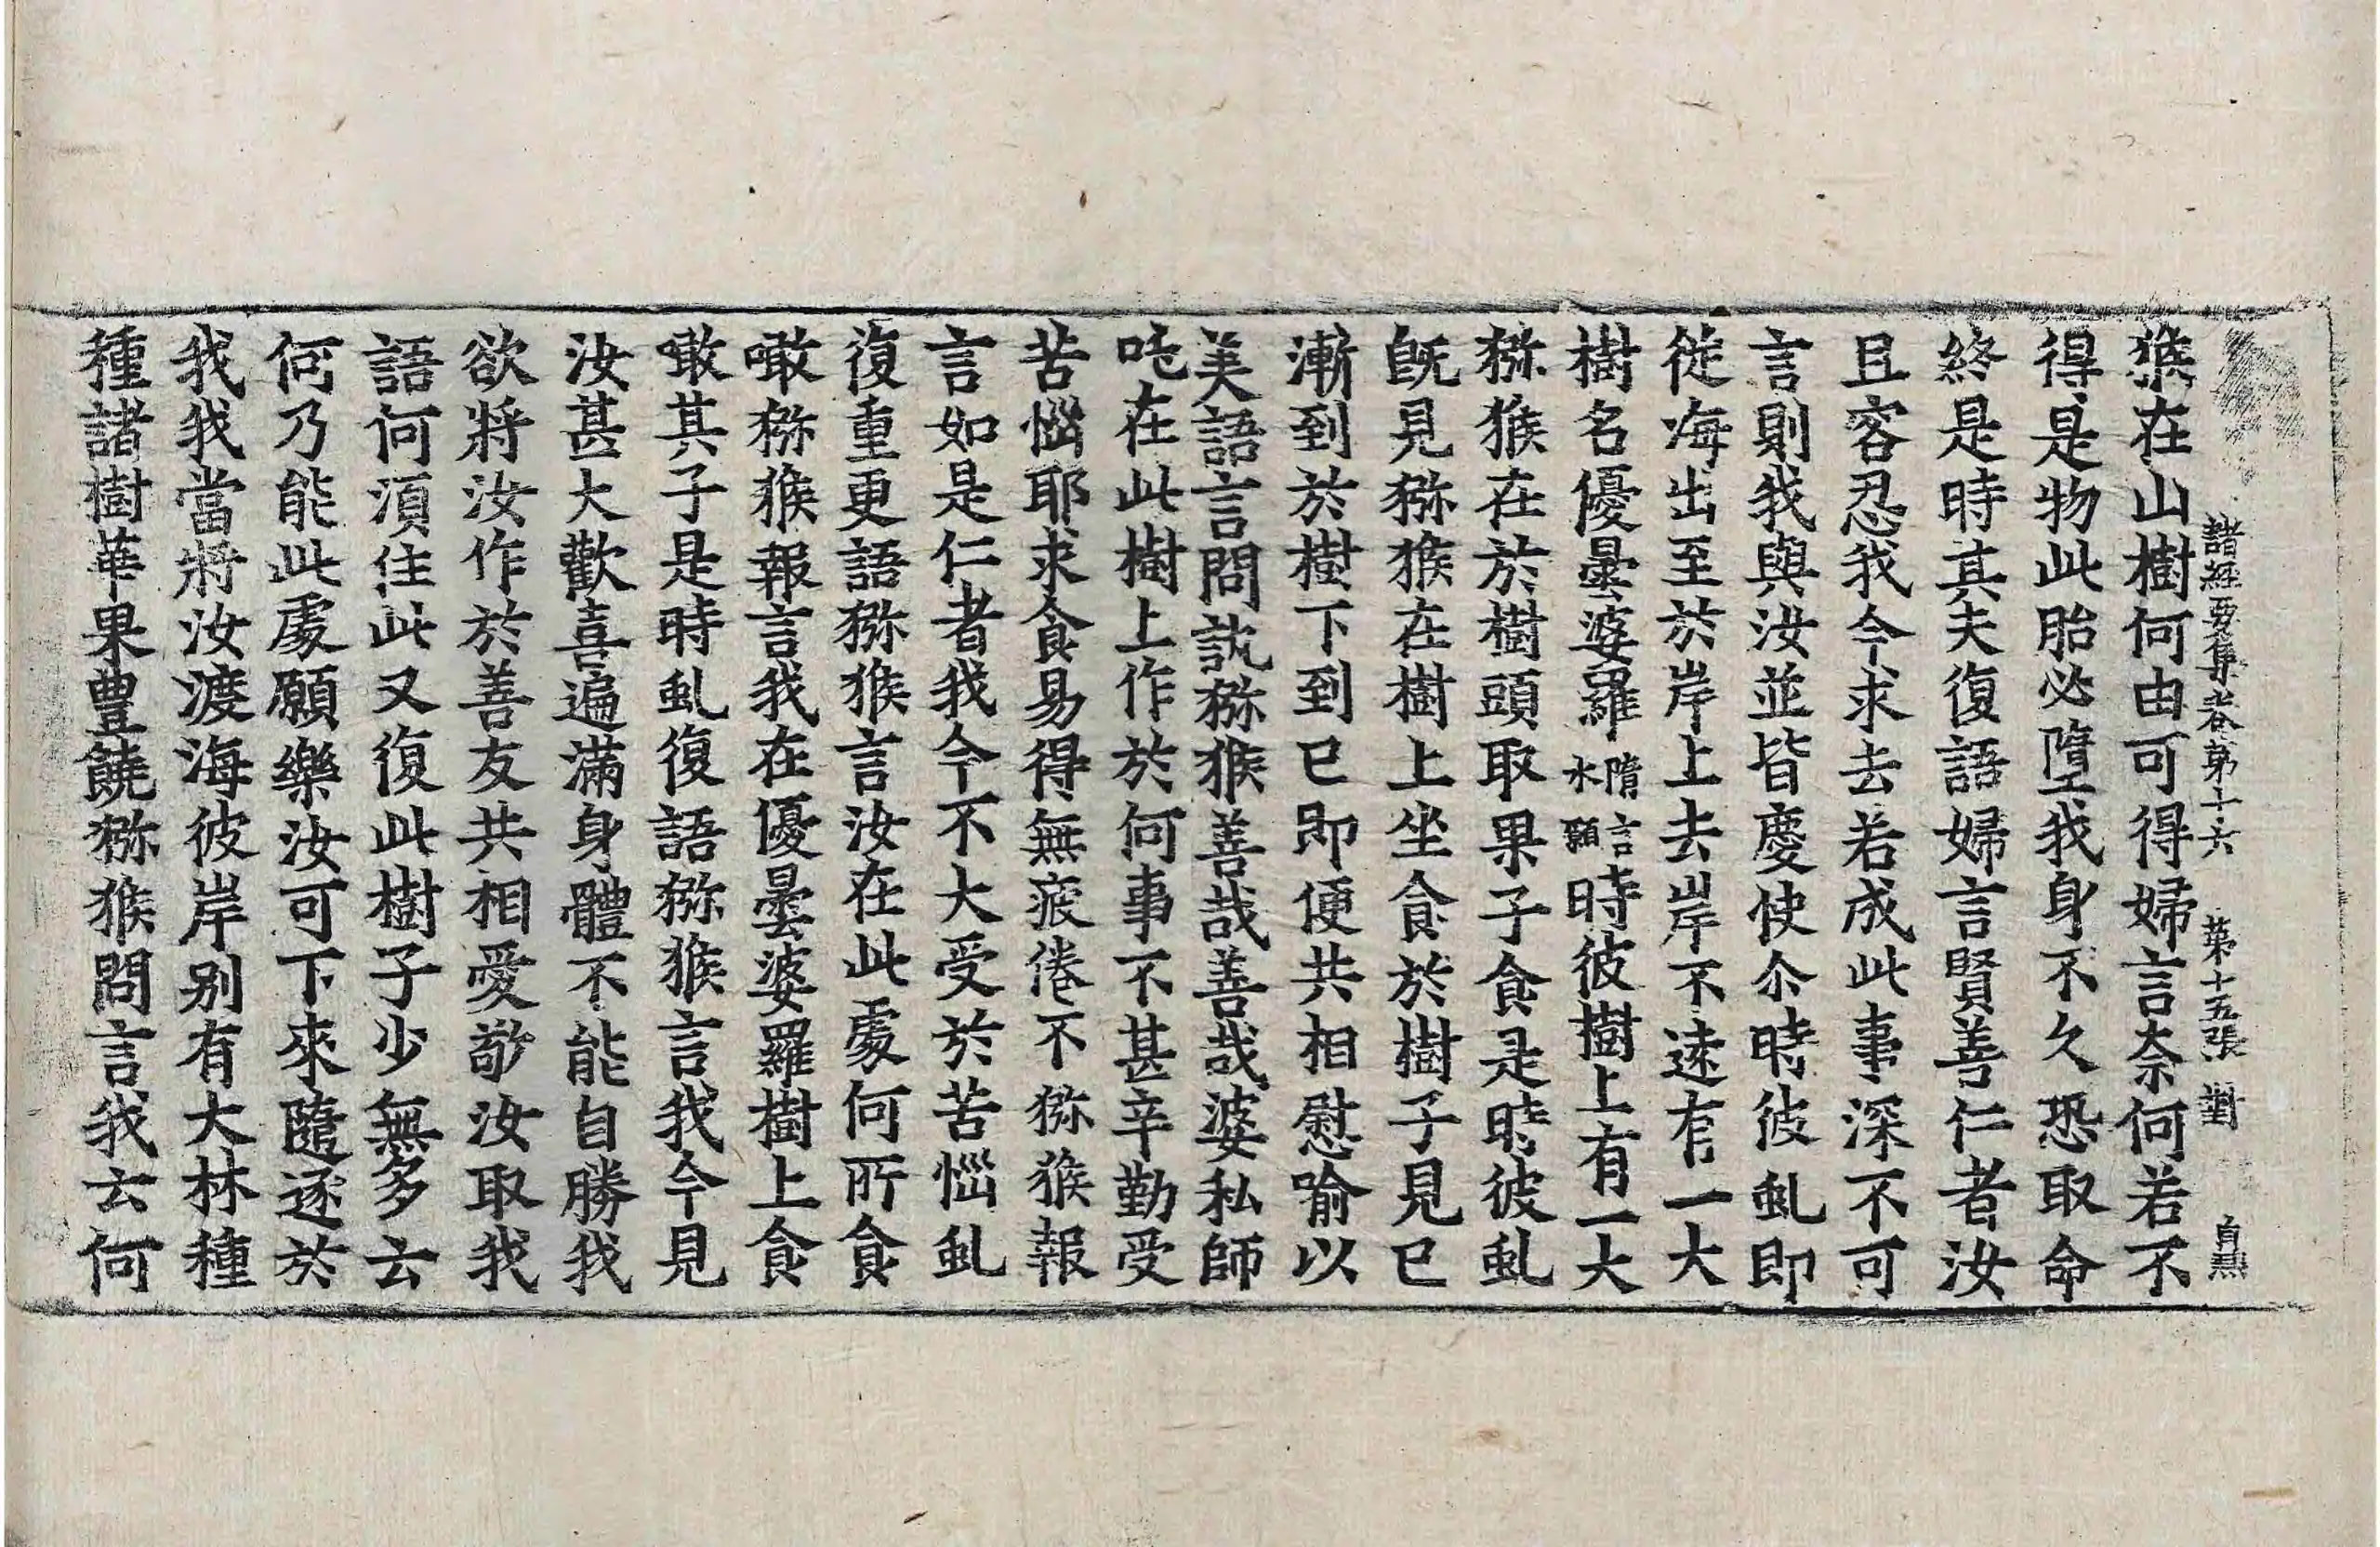 諸經要集卷第十六 第十五張 對
猴在山樹何由可得婦言奈何若不
得是物此胎必墮我身不久恐取命
終是時其夫復語婦言賢善仁者汝
且容忍我今求去若成此事深不可
言則我與汝並皆慶快尒時彼虬即
從海出至於岸上去岸不遠有一大
樹名優曇婆羅隋言求願時彼樹上有一大
猕猴在於樹頭取果子食是時彼虬
旣見猕猴在樹上坐食於樹子見已
漸到於樹下到已即便共相慰喻以
美語言問訊猕猴善哉善哉婆私師
吒在此樹上作於何事不甚辛勤受
苦惱耶求食易得無疲倦不猕猴報
言如是仁者我今不大受於苦惱虬
復重更語猕猴言汝在此處何所食
噉猕猴報言我在優曇婆羅樹上食
噉其子是時虬復語猕猴言我今見
汝甚大歡喜遍滿身體不能自勝我
欲將汝作於善友共相愛敬汝取我
語何須住此又復此樹子少無多云
何乃能此處願樂汝可下來隨逐於
我我當將汝渡海彼岸別有大林種
種諸樹華果豊饒猕猴問言我云何